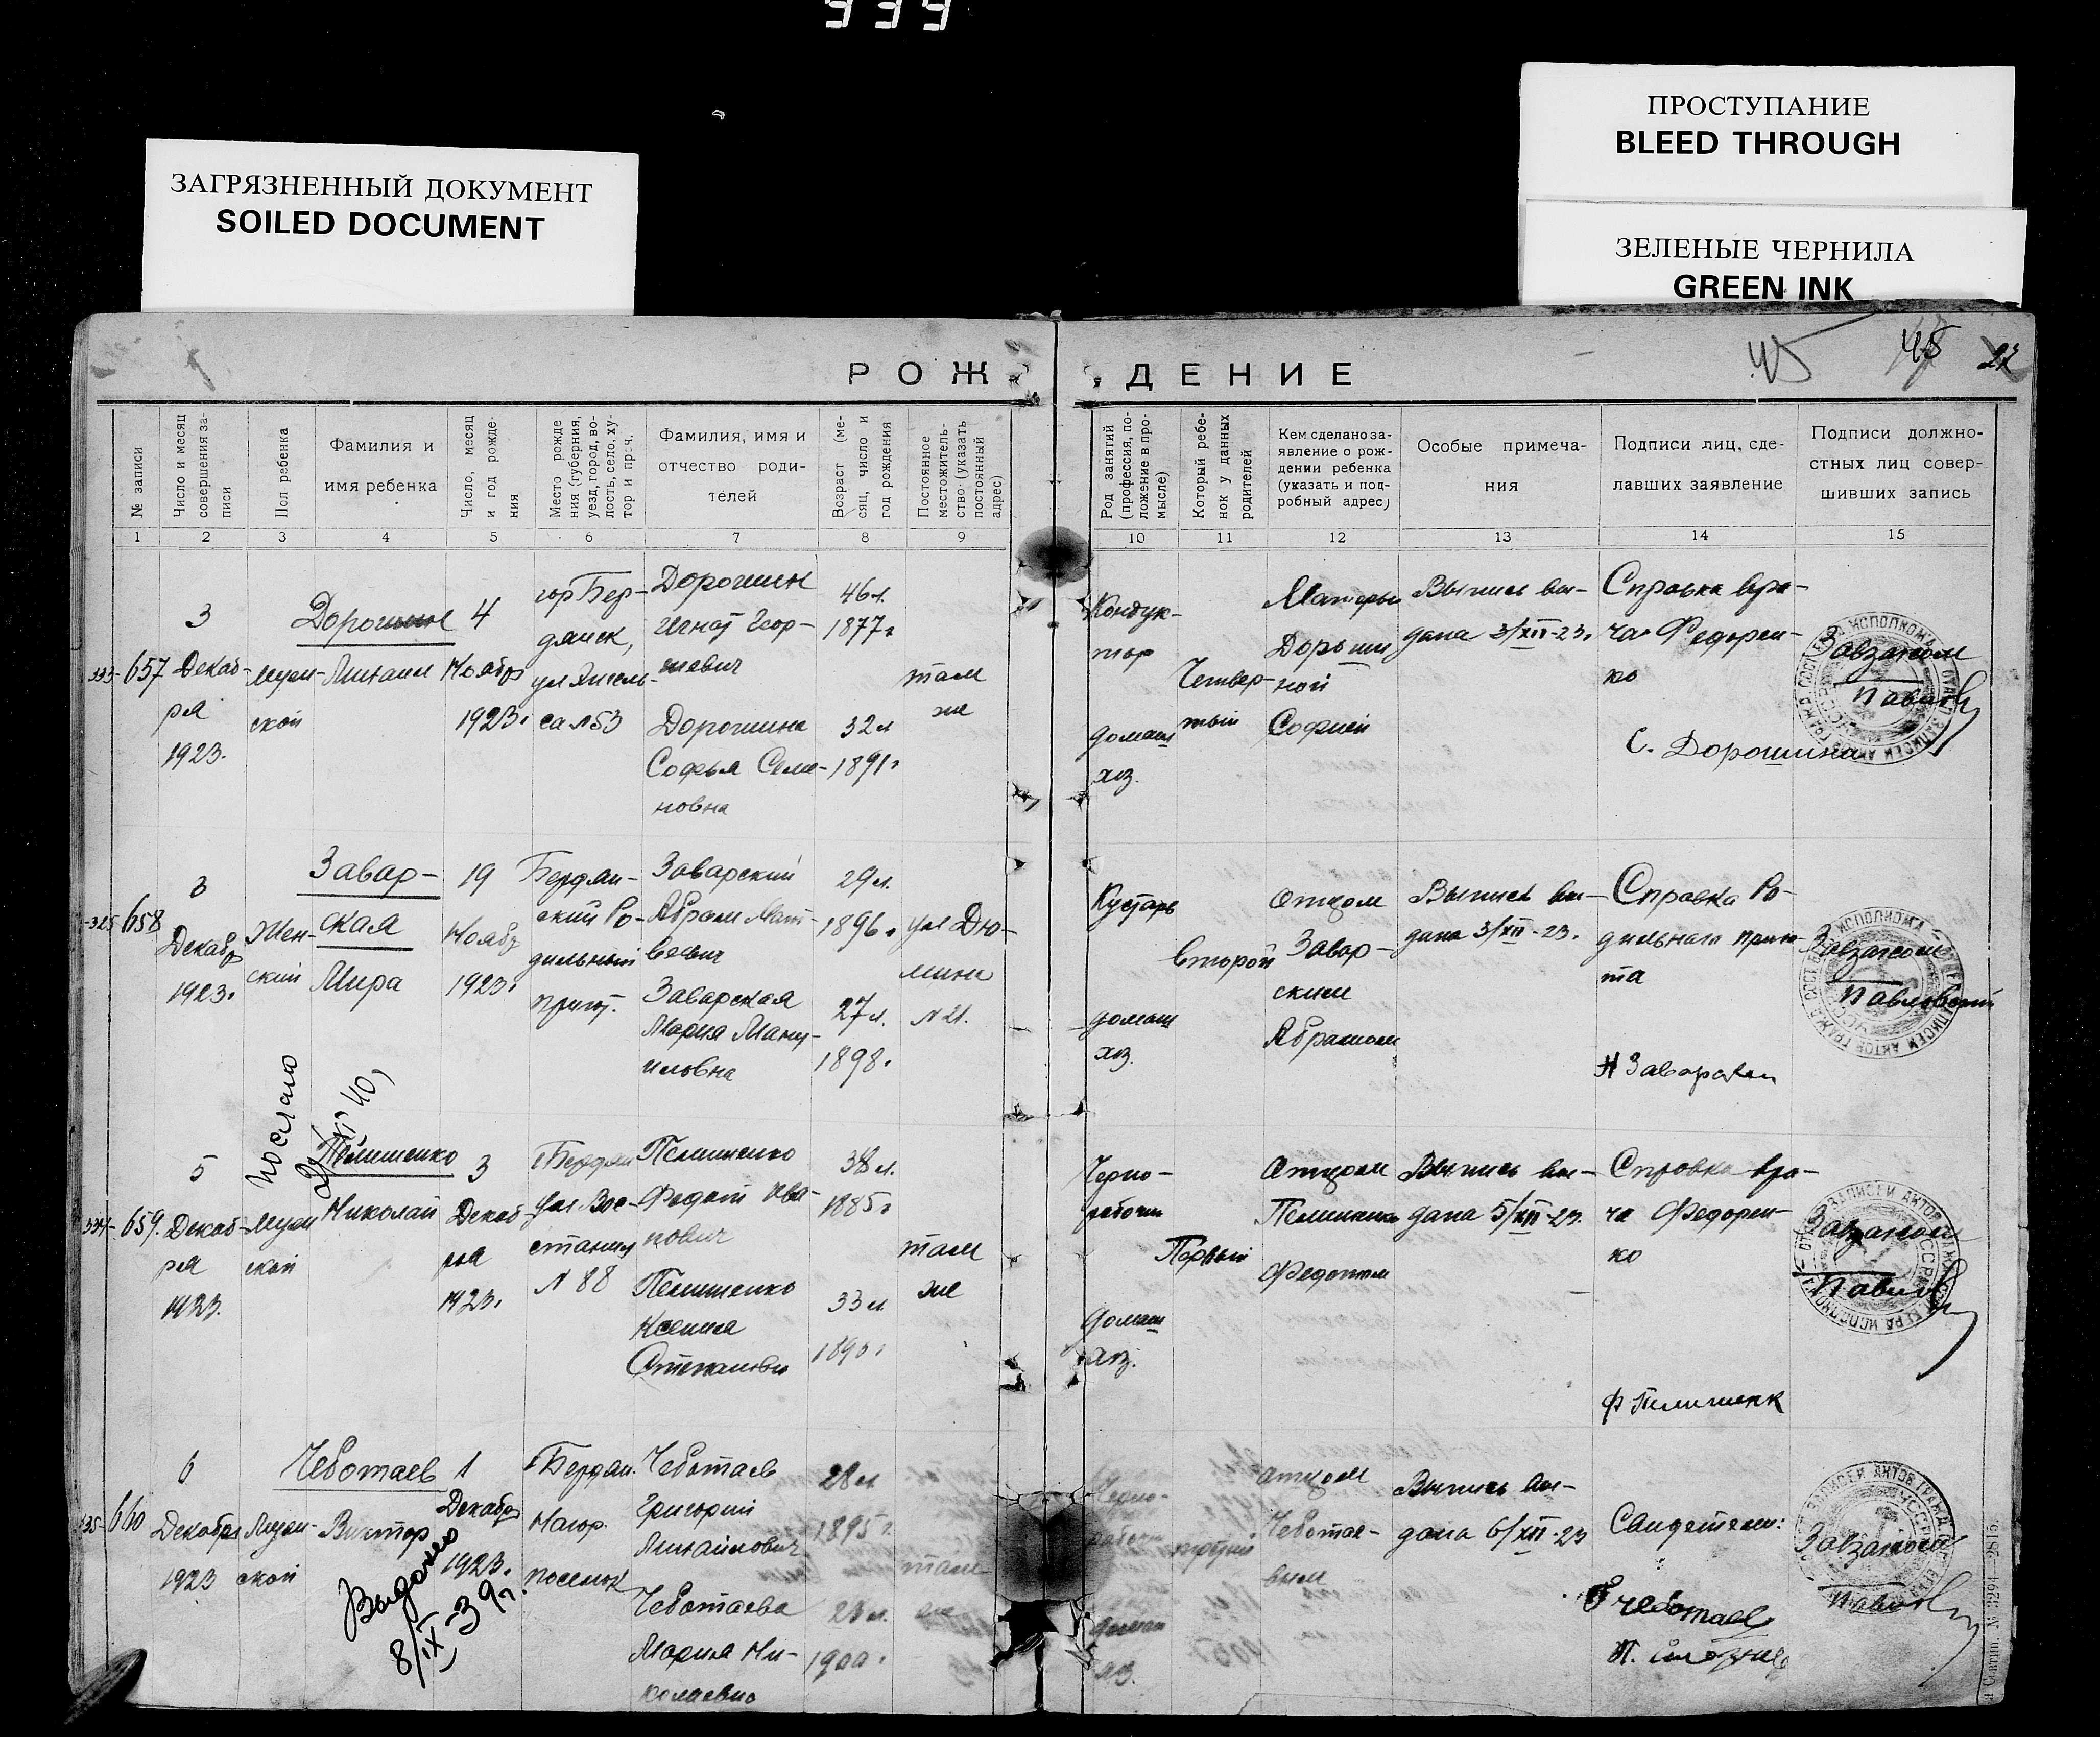 339
ПРОСТУПАНИЕ
BLEED THROUGH
ЗАГРЯЗНЕННЫЙ ДОКУМЕНТ
SOILED DOCUMENT
ЗЕЛЕНЫЕ ЧЕРНИЛА
GREEN INK
45
45
27
РОЖДЕНИЕ
№ записи
Число и месяц
совершения за-
писи
Пол ребенка
Фамилия и
имя ребенка
Число, месяц
и год рожде-
ния
Место рожде
ния (губерния,
уезд, город, во-
лость, село, ху-
тор и проч.
Фамилия, имя и
отчество роди-
телей
Возраст (ме-
сяц, число и
год рождения
Постоянное
местожитель-
ство (указать
постоянный
адрес)
Род занятий
(профессия, по-
ложение в про-
мысле)
Который ребе-
нок у данных
родителей
Кем сделано за-
явление о рож-
дении ребенка
(указать и под-
робный адрес)
Особые примеча-
ния
Подписи лиц, сде-
лавших заявление
Подписи должно-
стных лиц совер-
шивших запись
1 2 3 4 5 6 7 8 9 10 11 12 13 14 15
657
3
Декаб-
ря
1923.
Муж-
ской
Дорошин
Михаил
4
Ноября
1923.
гор Бер-
дянск,
ул Энгель-
са №53
Дорошин
Игнат Геор-
гиевич
Дорошина
Софья Семе-
новна
46 л.
1877 г
32 л
1891 г
там
же
Кондук-
тор
домаш
хоз.
Четвер-
тый
Матерью
Дороши
ной
Софией
Выпись вы-
дана 3/XII-23.
Справка вра-
ча Федорен-
ко
С. Дорошина
Завзагсом
658
3
Декабр
1923.
Жен-
ский
Завар-
ская
Мира
19
Ноябр
1923.
Бердян-
ский Ро-
дильный
приют.
Заварский
Абрам Мат-
веевич
Заварская
Мария Ману-
иловна
29 л.
1896 г
27 л.
1898.
ул Дю-
мина
№ 21.
Кустарь
домаш
хоз.
второй
Отцом
Завар-
ским
Абрамом
Выпись вы-
дана 3/XII-23.
Справка Ро-
дильного прию-
та
Завзагсом
Павловский
Послано
XI 40
659.
5
Декаб-
ря
1923.
Муж
ской
Пелишенко
Николай
3
Декаб-
ря
1923.
Бердян
ул Вос-
стания
№ 88
Пелишенко
Федот Ива-
нович
Пелишенко
Ксения
Степановна
38 л.
1885 г
33 л
там
же
Черно-
рабочий
домаш
хоз.
Первый
Отцом
Пелишенко
Федотом
Выпись вы-
дана 5/XII-23.
Справка вра-
ча Федорен-
ко
Завзагсом
660
6
Декабря
1923
Муж-
ской
Чеботаев
Виктор
1
Декабря
1923.
Бердян.
Нагор.
поселок
Чеботаев
Григорий
Михайлович
Чеботаева
Мария Ни-
колаевна
28 л
1895 г.
1900 г
там
же
Черно-
рабочий
домаш
хоз.
третий
Отцом
Чеботае-
вым
Выпись вы-
дана 6/XII-23
Свидетели:
Г Чеботаев
Завзагсом
Выдано
8/IX-39 г.
№ 3294—2815.